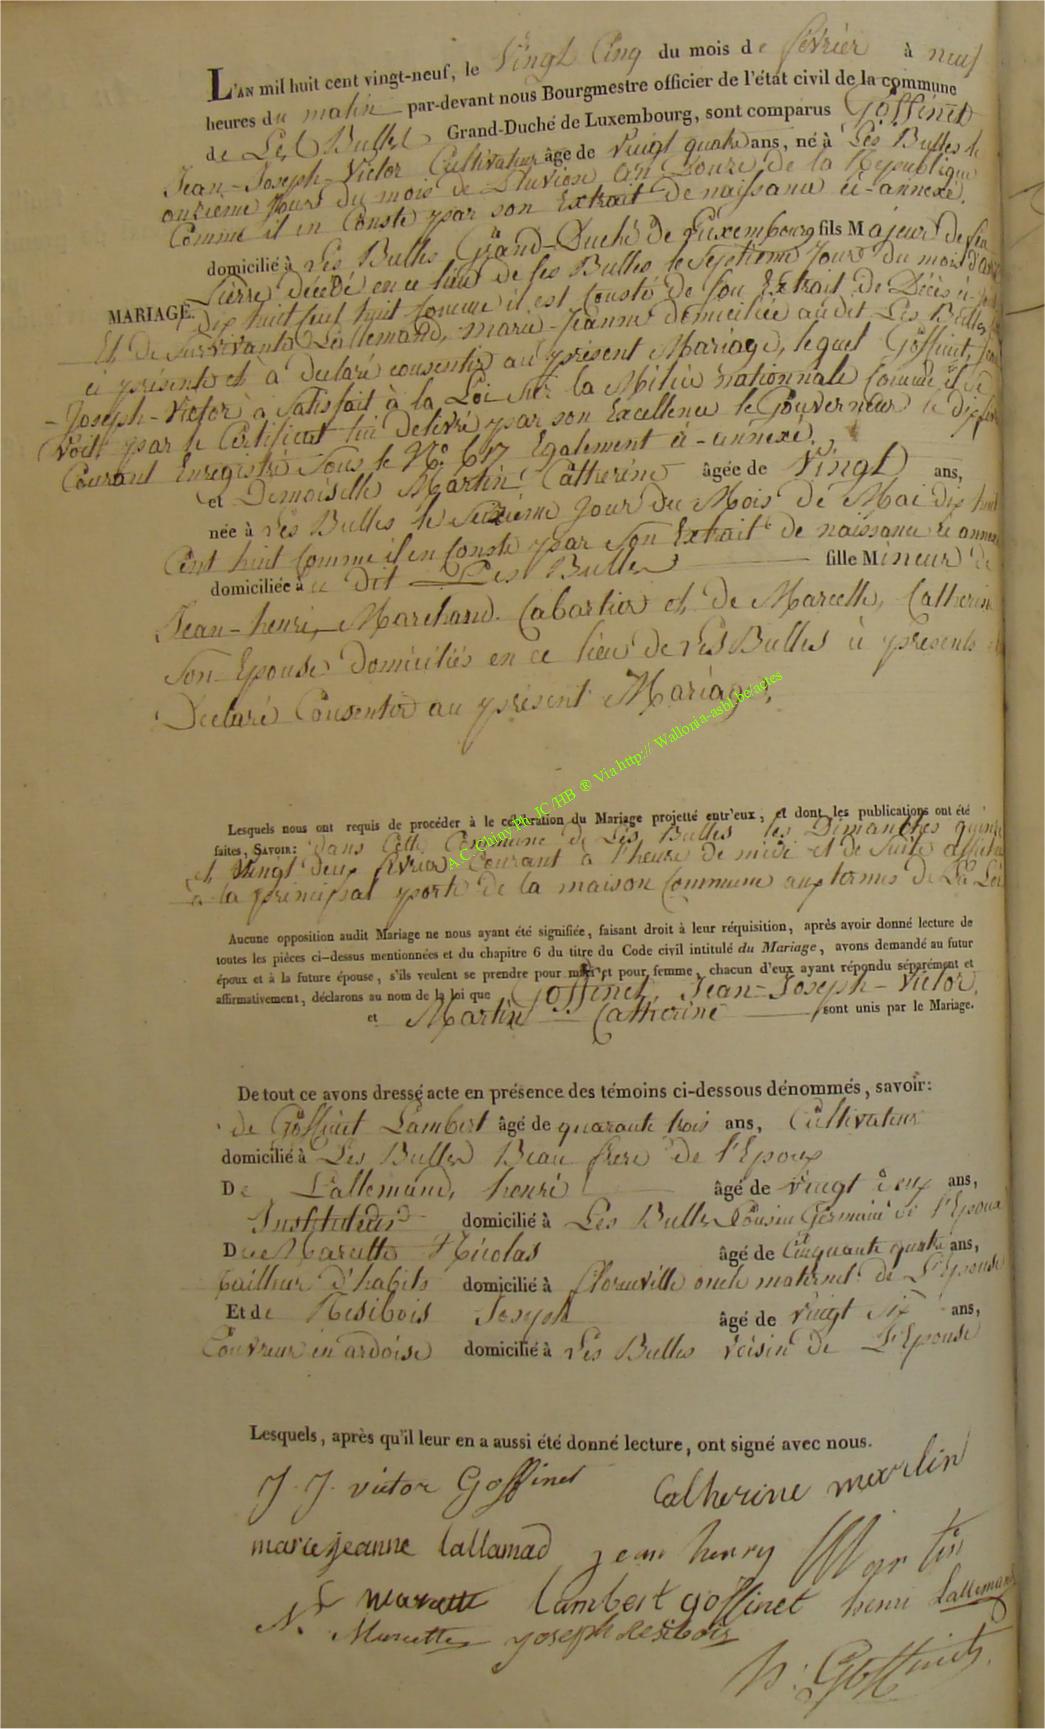 L'AN mil huit cent vingt-neuf, le Vingt Cinq du mois de février à neuf
heures du matin par-devant nous Bourgmestre officier de l'état civil de la commune
de Les Bulles Grand-Duché de Luxembourg, sont comparus Goffinet
Jean-Joseph-Victor Cultivateur âgé de Vingt quatre ans, né à Les Bulles le
onzieme Jour du mois de Pluviose an Douze de la Republique
Comme il en Conste par son Extrait de naissance ci-annexé.
domicilié à Les Bulles Grand-Duché de Luxembourg fils Majeur de feu
Pierre décédé en ce lieu de les Bulles le Septieme Jour du mois
MARIAGE.
Dix huit Cent huit comme il est Consté de son Extrait de Décès
Et de Survivante Lallemand, marie-Jeanne domiciliée audit Les Bulles
ci présente et a declaré consentir au présent Mariage, lequel Goffinet,
-Joseph-Victor a Satisfait à la Loi sur la Milice nationnale comme il se
Voit par le Certificat lui delivré par son Excellence le Gouverneur le
Courant Enregistré Sous le N° 617 Egalement ci-annexé.
et Demoiselle Martin Catherine âgée de Vingt ans,
née à Les Bulles le Seizieme Jour du Mois de Mai dix huit
Cent huit Comme il en Conste par Son Extrait de naissance ci annexé
domiciliée à ce dit Les Bulles fille Mineur de
Jean-henri, Marchand Cabartier et de Marcette, Catherine
Son Epouse domiciliés en ce lieu de Les Bulles ci présents
Declaré Consentir au présent Mariage,
A C Chiny Ph JC/HB ® Via http:// Wallonia-asbl.be/actes
Lesquels nous ont requis de procéder à le célébration du Mariage projetté entr'eux, et dont les publications ont été
faites, SAVOIR: dans Cette Commune de Les Bulles les Dimanches quinze
et Vingt deux fevrier Courant a l'heure de midi et de suite affiché
a la principal porte de la maison Commune aux termes de La Loi
Aucune opposition audit Mariage ne nous ayant été signifiée, faisant droit à leur réquisition, après avoir donné lecture de
toutes les pièces ci-dessus mentionnées et du chapitre 6 du titre du Code civil intitulé du Mariage, avons demandé au futur
époux et à la future épouse, s'ils veulent se prendre pour mari et pour femme, chacun d'eux ayant répondu séparément et
affirmativement, déclarons au nom de la loi que Goffinet, Jean-Joseph-Victor,
et Martin Catherine sont unis par le Mariage.
De tout ce avons dressé acte en présence des témoins ci-dessous dénommés, savoir:
de Goffinet Lambert âgé de quarante trois ans, Cultivateur
domicilié à Les Bulles Beau frere de l'Epoux
De Lallemand, henri âgé de vingt deux ans,
Instituteur domicilié à Les Bulles Cousin Germain de l'Epoux
De Marcette Nicolas âgé de Cinquante quatre ans,
tailleur d'habits domicilié à florenville oncle maternel de L'Epouse
Et de Resibois Joseph âgé de vingt six ans,
Couvreur en ardoise domicilié à Les Bulles Voisin de L'Epouse
Lesquels, après qu'il leur en a aussi été donné lecture, ont signé avec nous.
J. J. victor Goffinet Catherine martin
marie jeanne lallamad jean henry Martin
lambert goffinet henri Lallemand
N. Marcette joseph Resibois
Goffinet